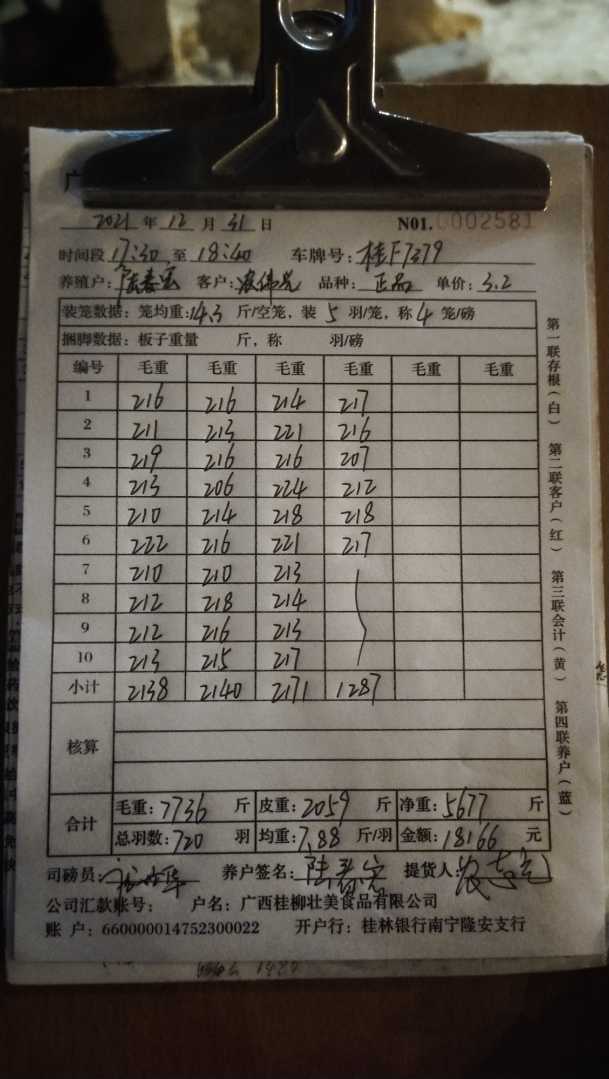 广
2021 年 12 月 31 日 N01.0002581
时间段 17:30 至 18:40 车牌号: 桂F7379
养殖户: 客户: 品种: 正品 单价: 3.2
装笼数据: 笼均重: 14.3 斤/空笼, 装 5 羽/笼, 称 4 笼/磅
捆脚数据: 板子重量 斤, 称 羽/磅
编号 毛重 毛重 毛重 毛重 毛重 毛重
1 216 216 214 217
2 211 213 221 216
3 219 216 216 207
4 213 206 224 212
5 210 214 218 218
6 222 216 221 217
7 210 210 213
8 212 218 214
9 212 216 213
10 213 215 217
小计 2138 2140 2171 1287
核算
合计 毛重: 7736 斤 皮重: 2059 斤 净重: 5677 斤
总羽数: 720 羽 均重: 7.88 斤/羽 金额: 18166 元
司磅员: 养户签名: 提货人:
公司汇款账号: 户名: 广西桂柳壮美食品有限公司
账 户: 660000014752300022 开户行: 桂林银行南宁隆安支行
第一联存根(白) 第二联客户(红) 第三联会计(黄) 第四联养户(蓝)